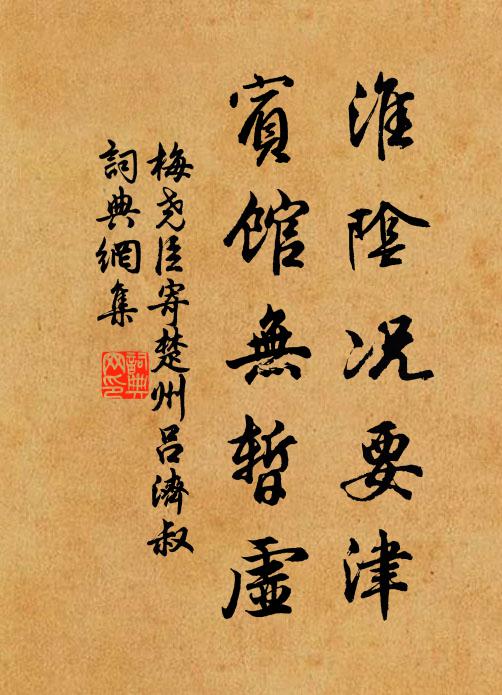 淮陰况要津
賓館無暫虛
梅尧臣寄楚州呂濟叔
詞典網集
詞典网印